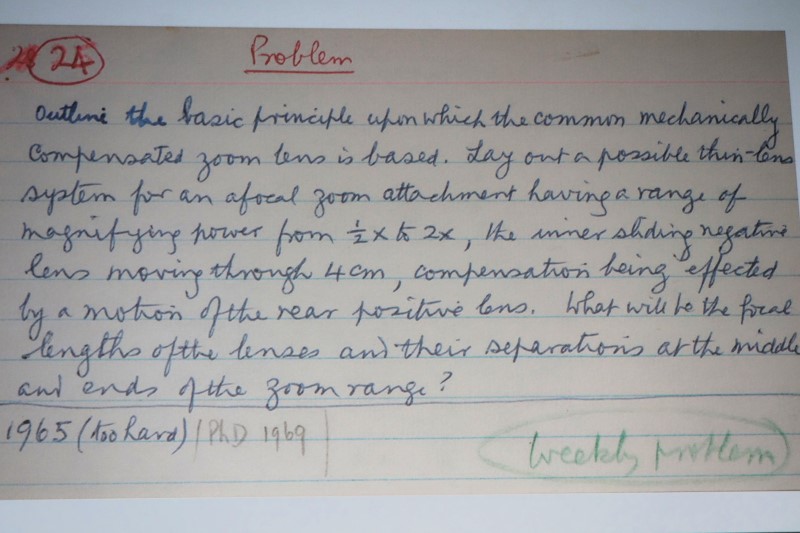 24
Problem
Outline the basic principle upon which the common mechanically
compensated zoom lens is based. Lay out a possible thin-lens
system for an afocal zoom attachment having a range of
magnifying power from ½x to 2x, the inner sliding negative
lens moving through 4 cm, compensation being effected
by a motion of the rear positive lens. What will be the focal
lengths of the lenses and their separations at the middle
and ends of the zoom range?
1965 (too hard) | PhD 1969 |
Weekly problem